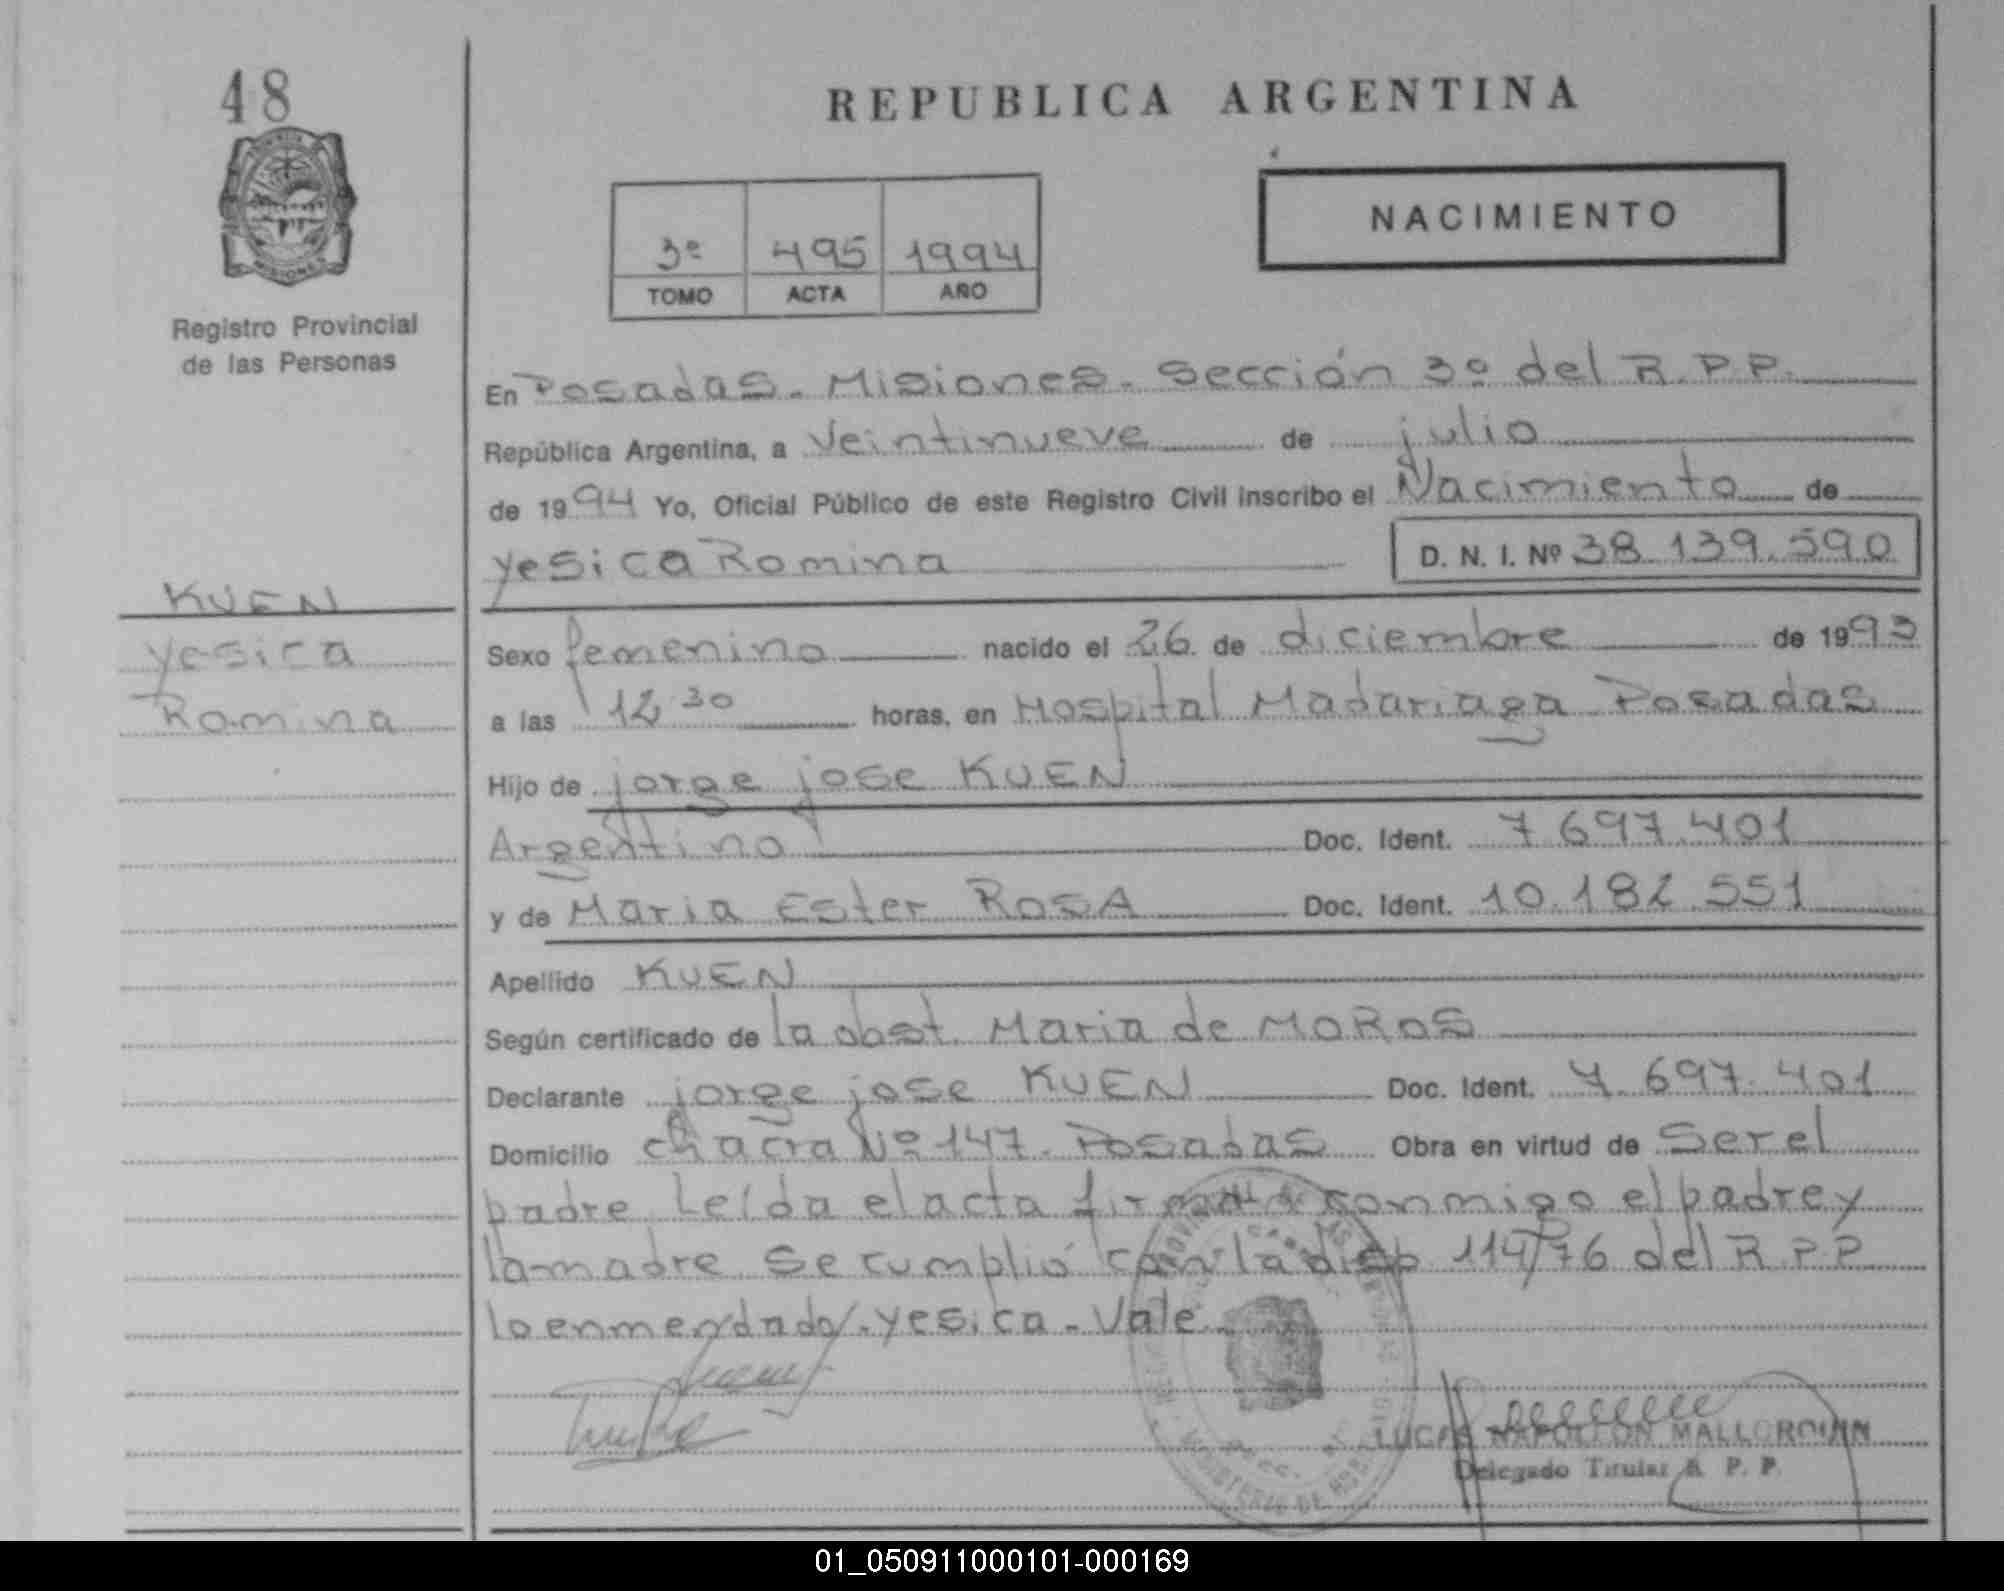 48
REPUBLICA ARGENTINA
NACIMIENTO
3º 495 1994
TOMO ACTA AÑO
Registro Provincial
de las Personas
En Posadas - Misiones - Sección 3º del R.P.P.
República Argentina, a Veintinueve de julio
de 1994 Yo, Oficial Público de este Registro Civil inscribo el Nacimiento de
yesica Romina D. N. I. Nº 38.139.590
KUEN
Yesica
Romina
Sexo femenino nacido el 26 de diciembre de 1993
a las 12 30 horas, en Hospital Madariaga Posadas
Hijo de jorge jose KUEN
Argentino Doc. Ident. 7.697.401
y de Maria Ester ROSA Doc. Ident. 10.182.551
Apellido KUEN
Según certificado de la obst. Maria de MOROS
Declarante jorge jose KUEN Doc. Ident. 7.697.401
Domicilio chacra Nº 147 - Posadas Obra en virtud de Ser el
padre Leída el acta firman conmigo el padre y
la madre Se cumplió con la disp 114/76 del R.P.P
lo enmendado/. yesica - Vale
MINISTERIO DE
LUCAS NAPOLEON
Delegado Titular R. P. P.
01_050911000101-000169